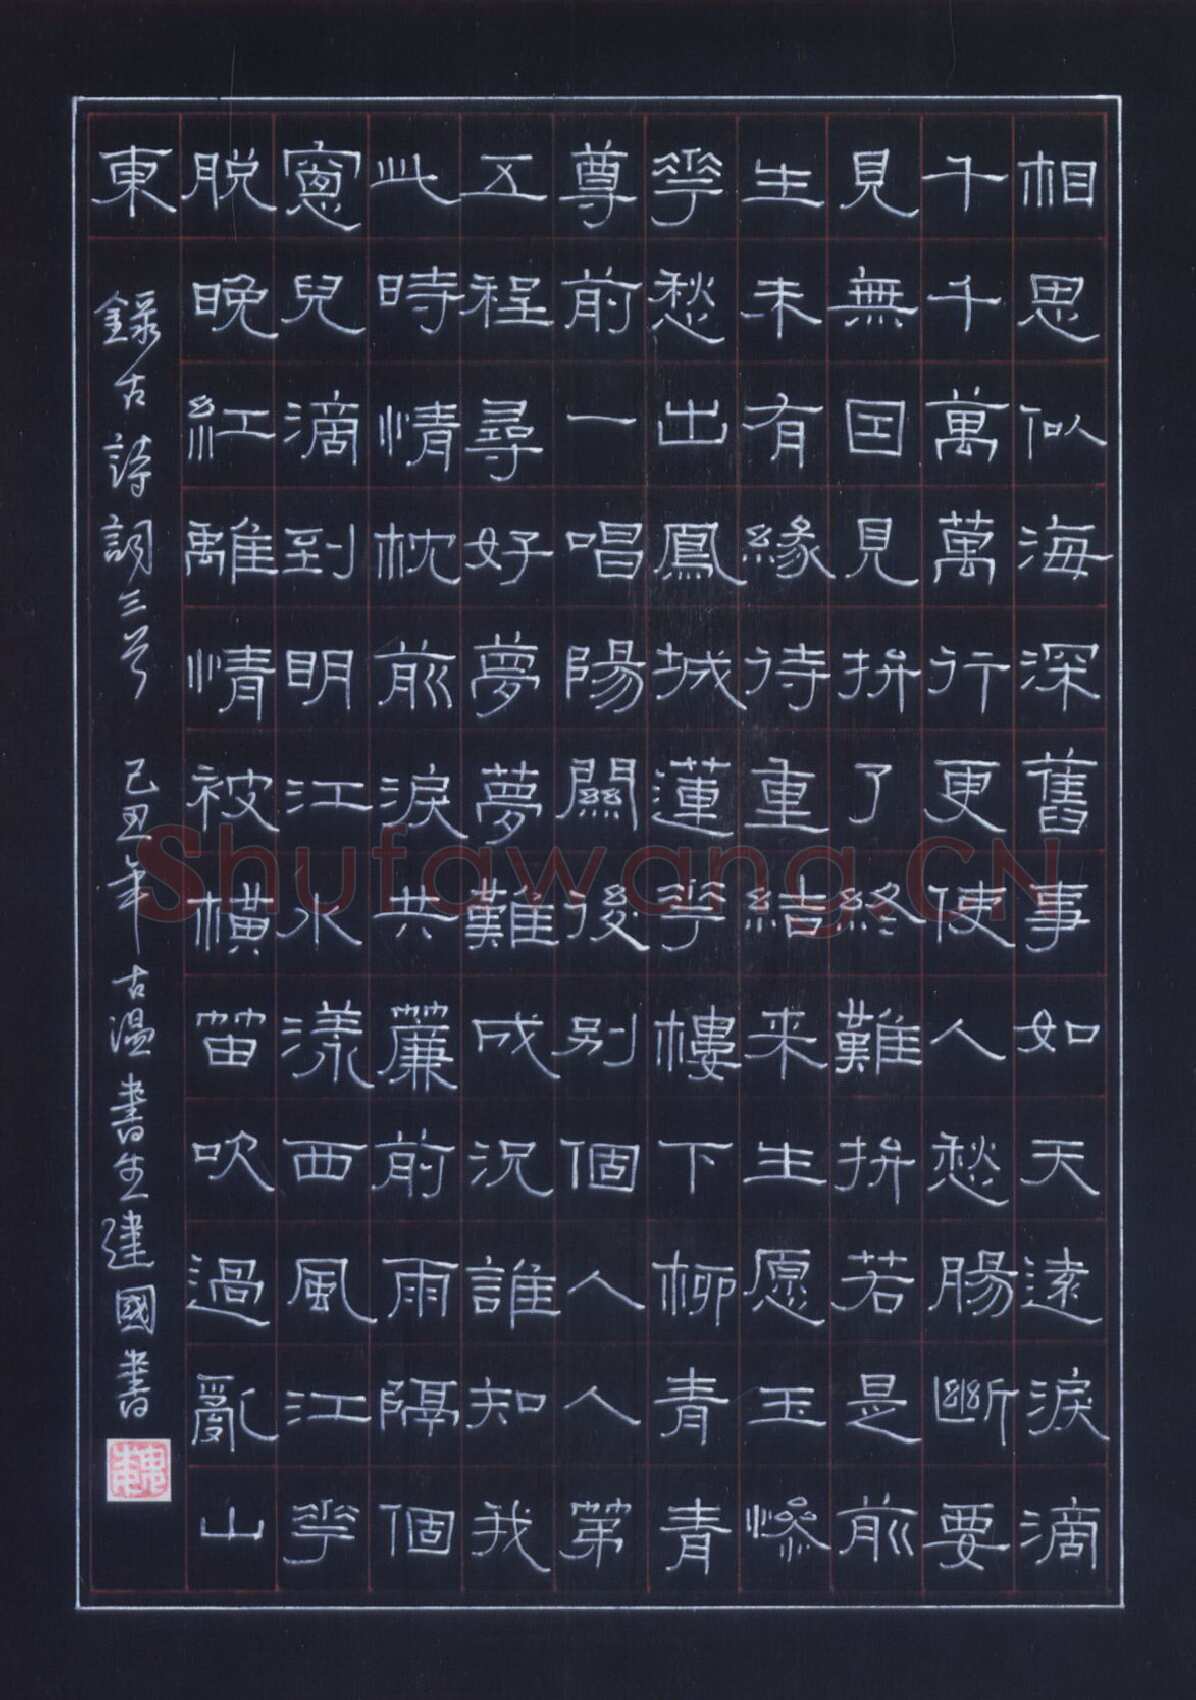 相思似海深舊事如天遠淚滴
千千萬萬行更使人愁腸斷要
見無因見拚了終難拚若是前
生未有緣待重結来生愿玉慘
花愁出鳳城蓮花樓下柳青青
尊前一唱陽關後別個人人第
五程尋好夢夢難成況誰知我
此時情枕前淚共簾前雨隔個
窻兒滴到明江水漾西風江花
脱晚紅離情被橫笛吹過亂山
東
錄古詩詞三首 己丑年古溫書生建國書
Shufawang.CN